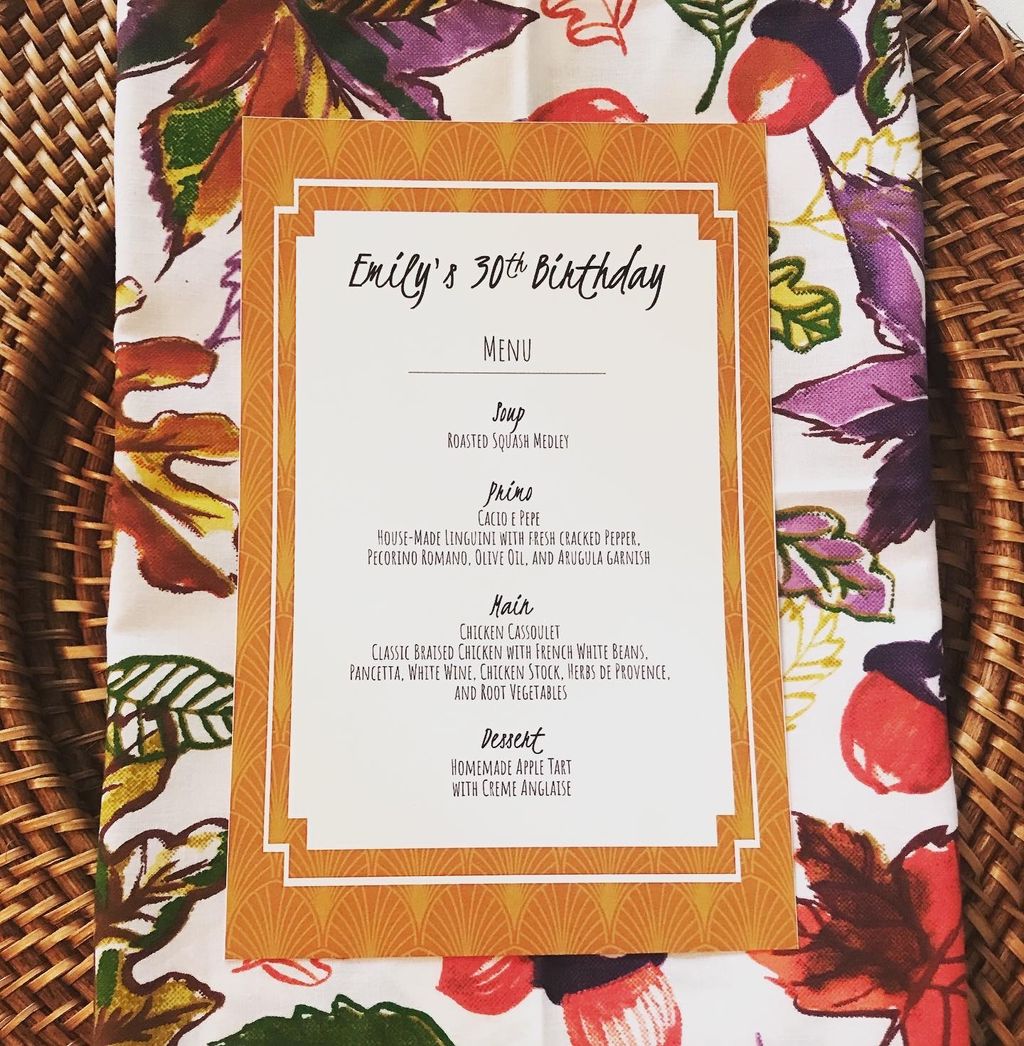 Emily's 30th Birthday
Menu
Soup
Roasted Squash Medley
Primo
Cacio e Pepe
House-Made Linguini with fresh cracked Pepper,
Pecorino Romano, Olive Oil, and Arugula garnish
Main
Chicken Cassoulet
Classic Braised Chicken with French White Beans,
Pancetta, White Wine, Chicken Stock, Herbs de Provence,
and Root Vegetables
Dessert
Homemade Apple Tart
with Creme Anglaise